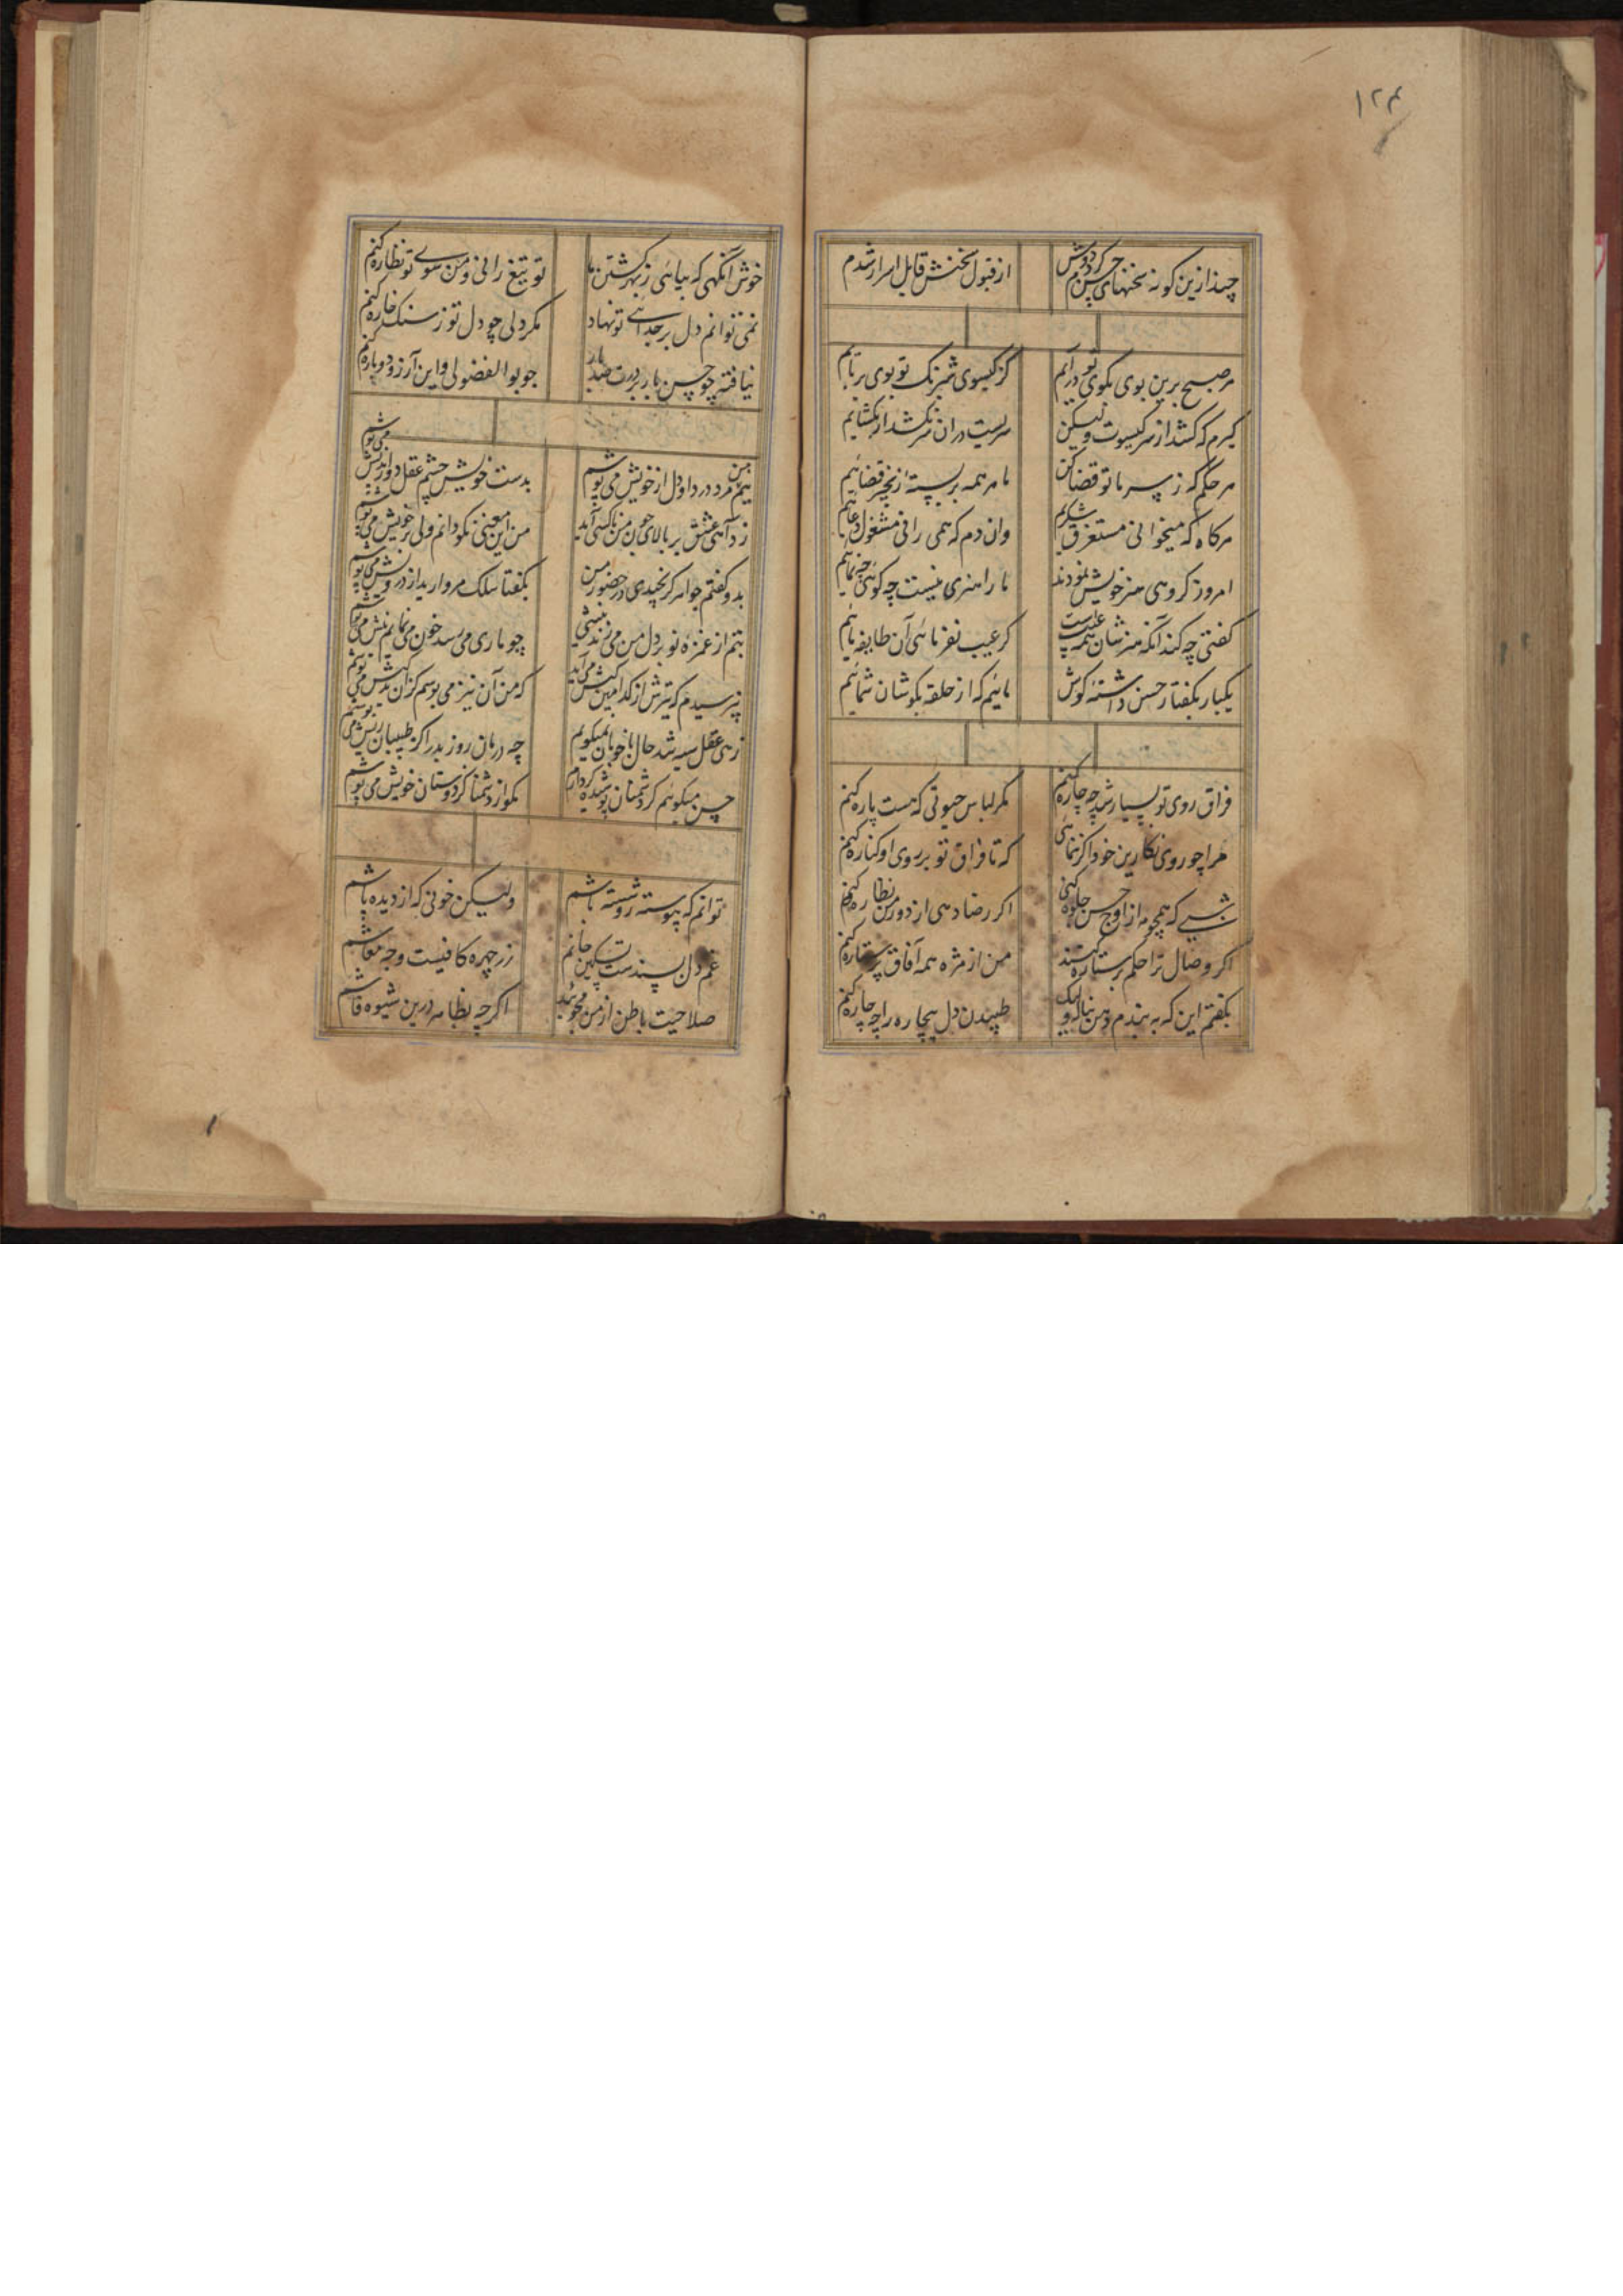 ۱۲۴
چند ازین کونه سخنهای حسن کرد و دوش
از قبول سخنش قابل اسرار شدم
هر صبح برین بوی بکوی تو درآیم
کز کیسوی شبرنک تو بوی برباییم
کیرم که کشد از سر کیسوت ولیکن
سریست دران سر نکشد ار بکشاییم
هر حکم که ز سر ما تو قضا کن
ما سر همه بر بستهٔ زنجیر قضاییم
هرگاه که میخوانی مستغرق شکریم
وان دم که همی رانی مشغول دعاییم
امروز کروهی هنر خویش نمودند
ما را هنری نیست چه کوئی چه نماییم
کفتی چه کند آنکه هنرشان همه عیبست
کر عیب نفرمائی آن طایفه ماییم
یکبار بکفتار حسن داشتهٔ کوش
مائیم که از حلقه بکوشان شمائیم
فراق روی تو بسیار شد چه چاره کنم
مکر لباس حیوتی که هست پاره کنم
مرا چو روی نکارین خود اگر ننمائی
که تا فراق تو بر روی او کناره کنم
شبی که همچو مه از اوج حسن جلوه کنی
اکر رضا دهی از دور من نظاره کنم
اکر وصال ترا حکم بر ستاره کنند
من از مژه همه آفاق پرستاره کنم
بکفتم این که به بندم دهن ز ناله ولیک
طپیدن دل بیچاره را چه چاره کنم
خوش آنکهی که بیائی ز بهر کشتن ما
تو تیغ رانی و من سوی تو نظاره کنم
نمی توانم دل بر جدائی تو نهاد
مکر دلی چو دل تو ز سنک خاره کنم
نیافته چو حسن بار بر درت صد بار
چو بوالفضولی و این آرزو دوباره کنم
منم مرد درد و دل از خویش می پوشم
بدست خویش چشم عقل دوراندیش می پوشم
ز دآهی عشق بر بالای چون من ناکسی آید
من این معنی نکو دانم ولی بر خویش می پوشم
بدو کفتم جواهر کر نچیدی در حضور من
بکفتا سلک مروارید از درویش می پوشم
بتم از غمزهٔ تو بر دل من می زند نیشی
چو یاری می رسد خون می نمایم نیش می پوشم
نپرسیدم که تیرش از کدامین کیش می آید
که من آن نیز می بوسم کزان کیش می پوشم
زهی عقل سیه شد حال با خوبان نمیکویم
چه درمان روز بد را کز طبیبان ریش می پوشم
حسن میکویم کز دشمنان پوشیده کردارم
نکو از دشمنا کز دوستان خویش می پوشم
توانم که پیوسته رو شسته باشم
ولیکن خونی که از دیده پاشم
غم دل پسندست تسکین جانم
زر چهره کافیست وجه معاشم
صلاحیت باطن از من مجوئید
اکرچه بظاهر درین شیوه فاشم